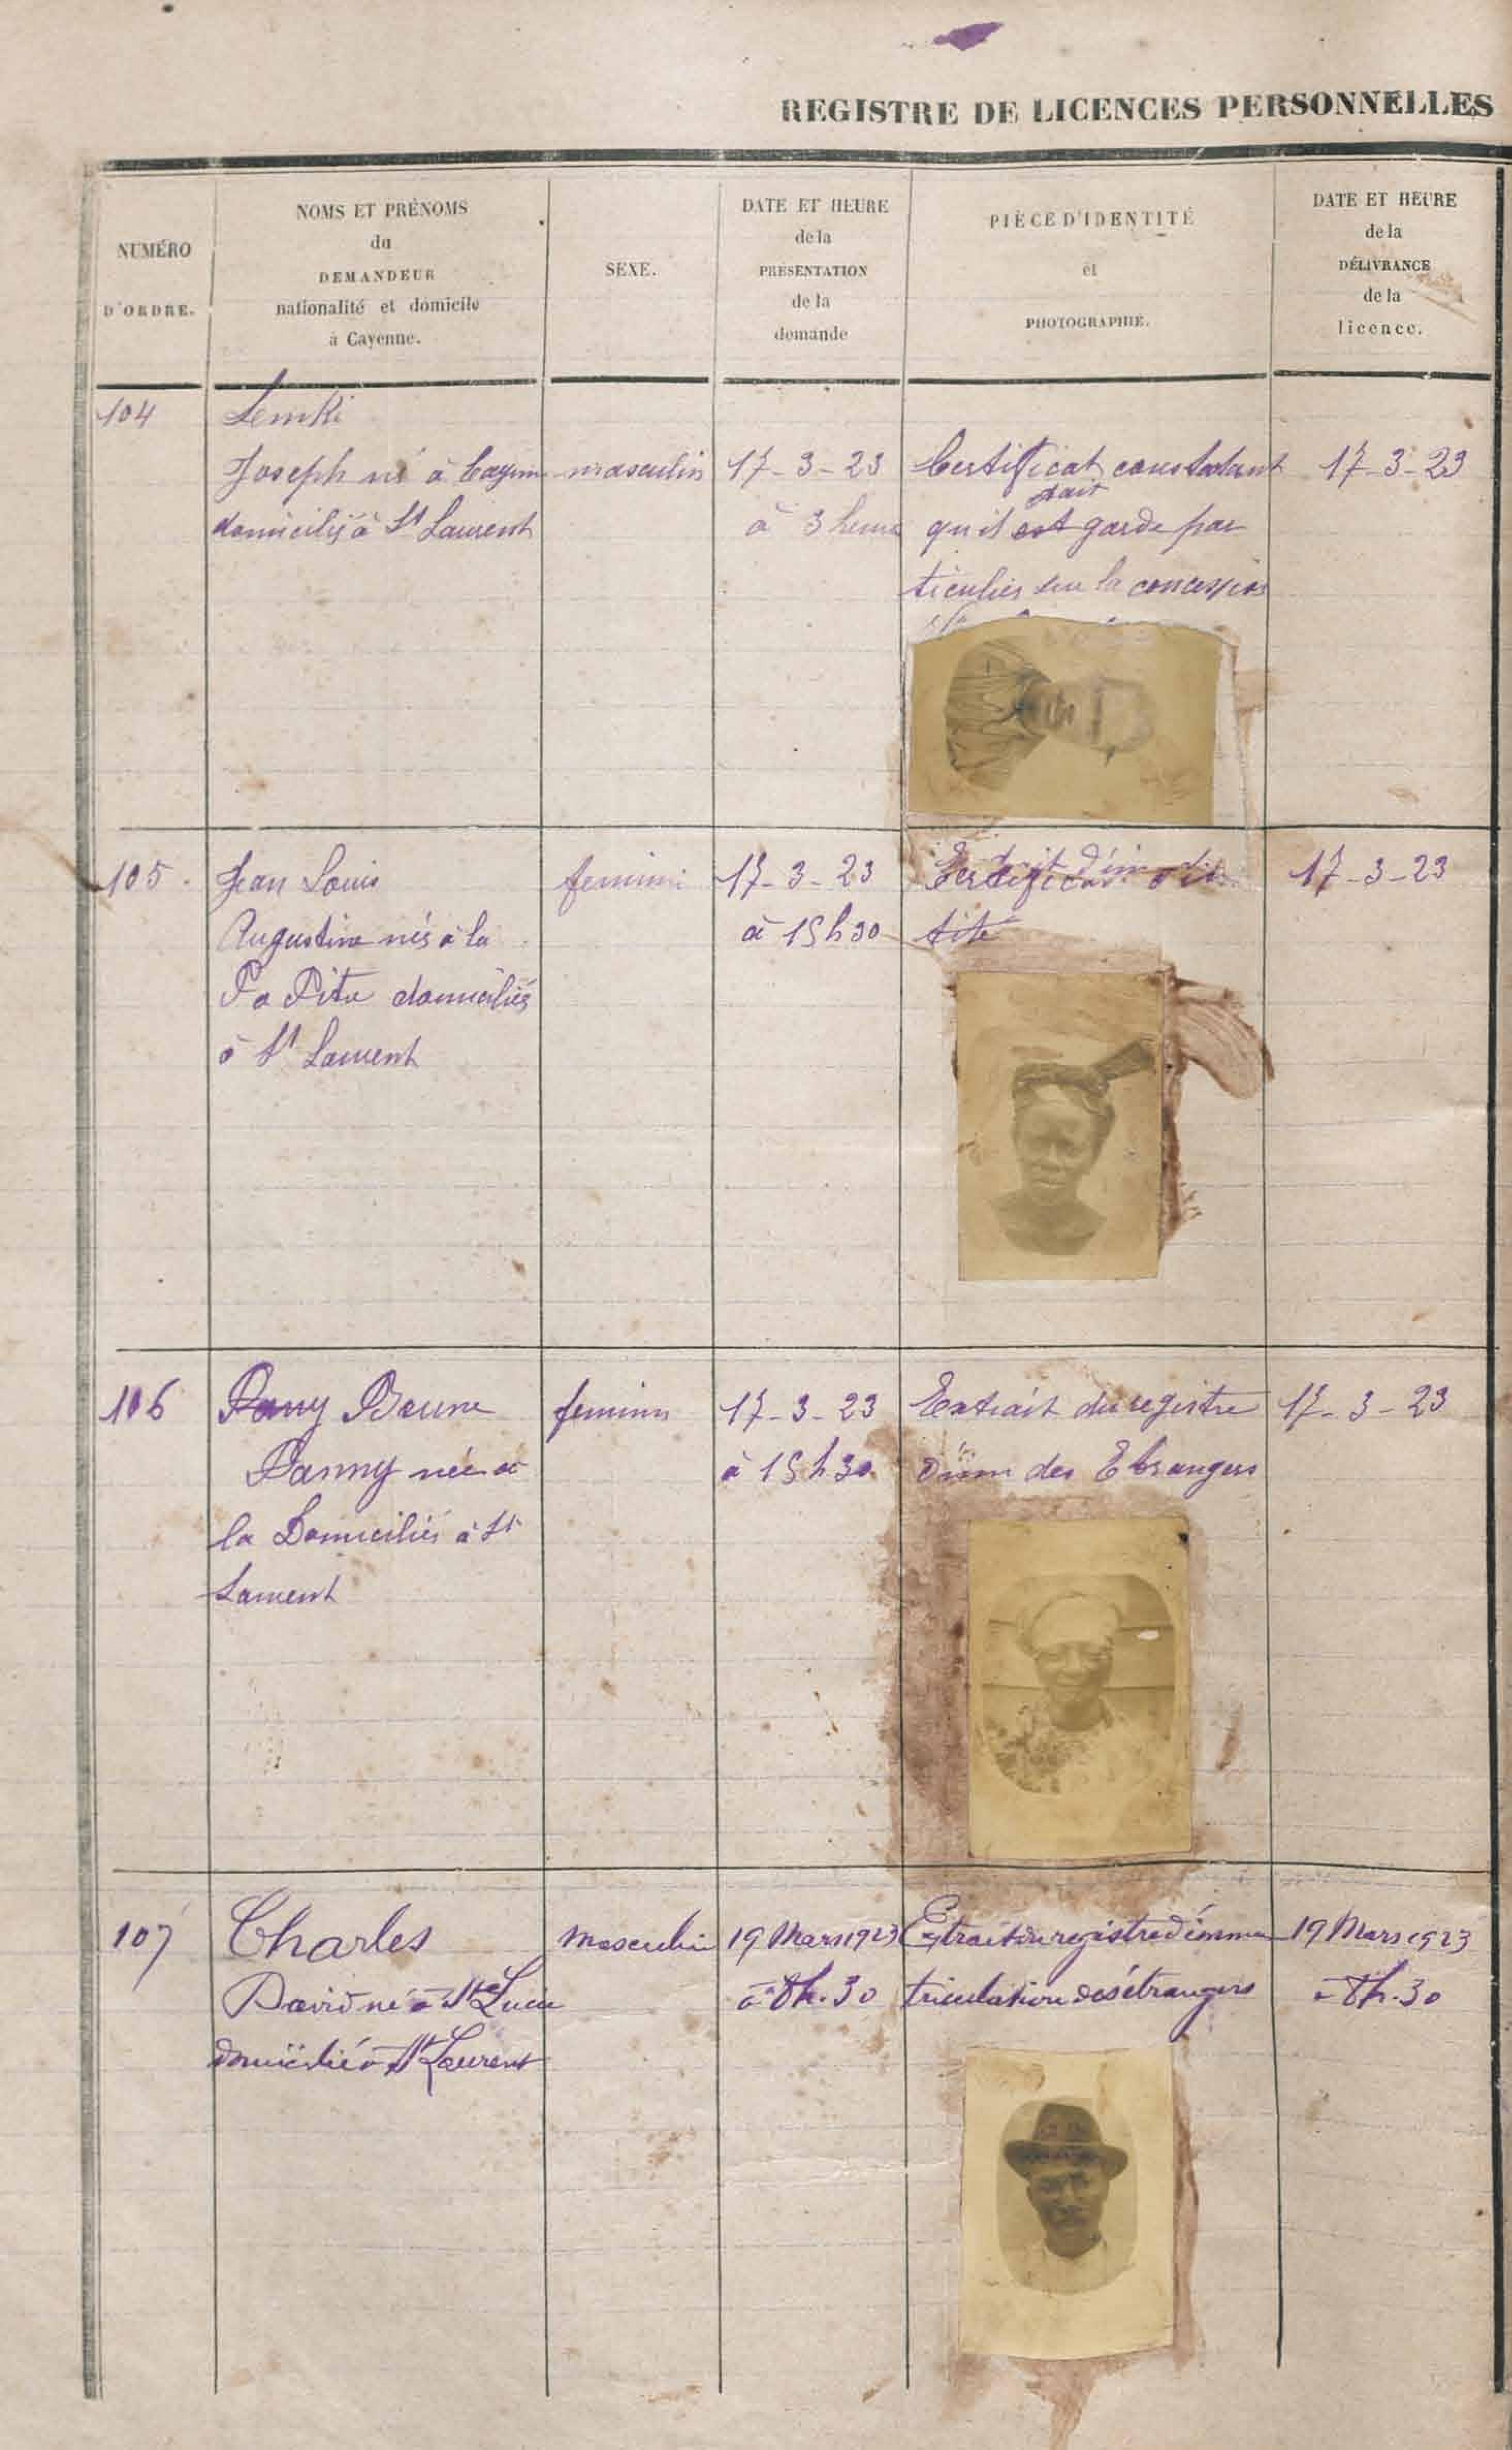 REGISTRE DE LICENCES PERSONNELLES
NUMÉRO
D'ORDRE.
NOMS ET PRÉNOMS
du
DEMANDEUR
nationalité et domicile
à Cayenne.
SEXE.
DATE ET HEURE
de la
PRÉSENTATION
de la
demande
PIÈCE D'IDENTITÉ
et
PHOTOGRAPHIE.
DATE ET HEURE
de la
DÉLIVRANCE
de la
licence.
104
Lemki
Joseph né à Cayenne
domicilié à St Laurent
masculin
17-3-23
à 3 heures
Certificat constatant
était
qu'il est garde par
ticulier sur la concession
17-3-23
105
Jean Louis
Augustine née à la
domiciliée
à St Laurent
feminin
17-3-23
à 15h30
tité
17-3-23
106
Fanny née à
la Domiciliée à St
Laurent
feminin
17-3-23
à 15h30
Extrait du registre
d'im des Etrangers
17-3-23
107
Charles
David né à Ste Lucie
domicilié à St Laurent
masculin
19 Mars 1923
à 8h.30
Extrait du registre d'imma
triculation des étrangers
19 Mars 1923
à 8h.30